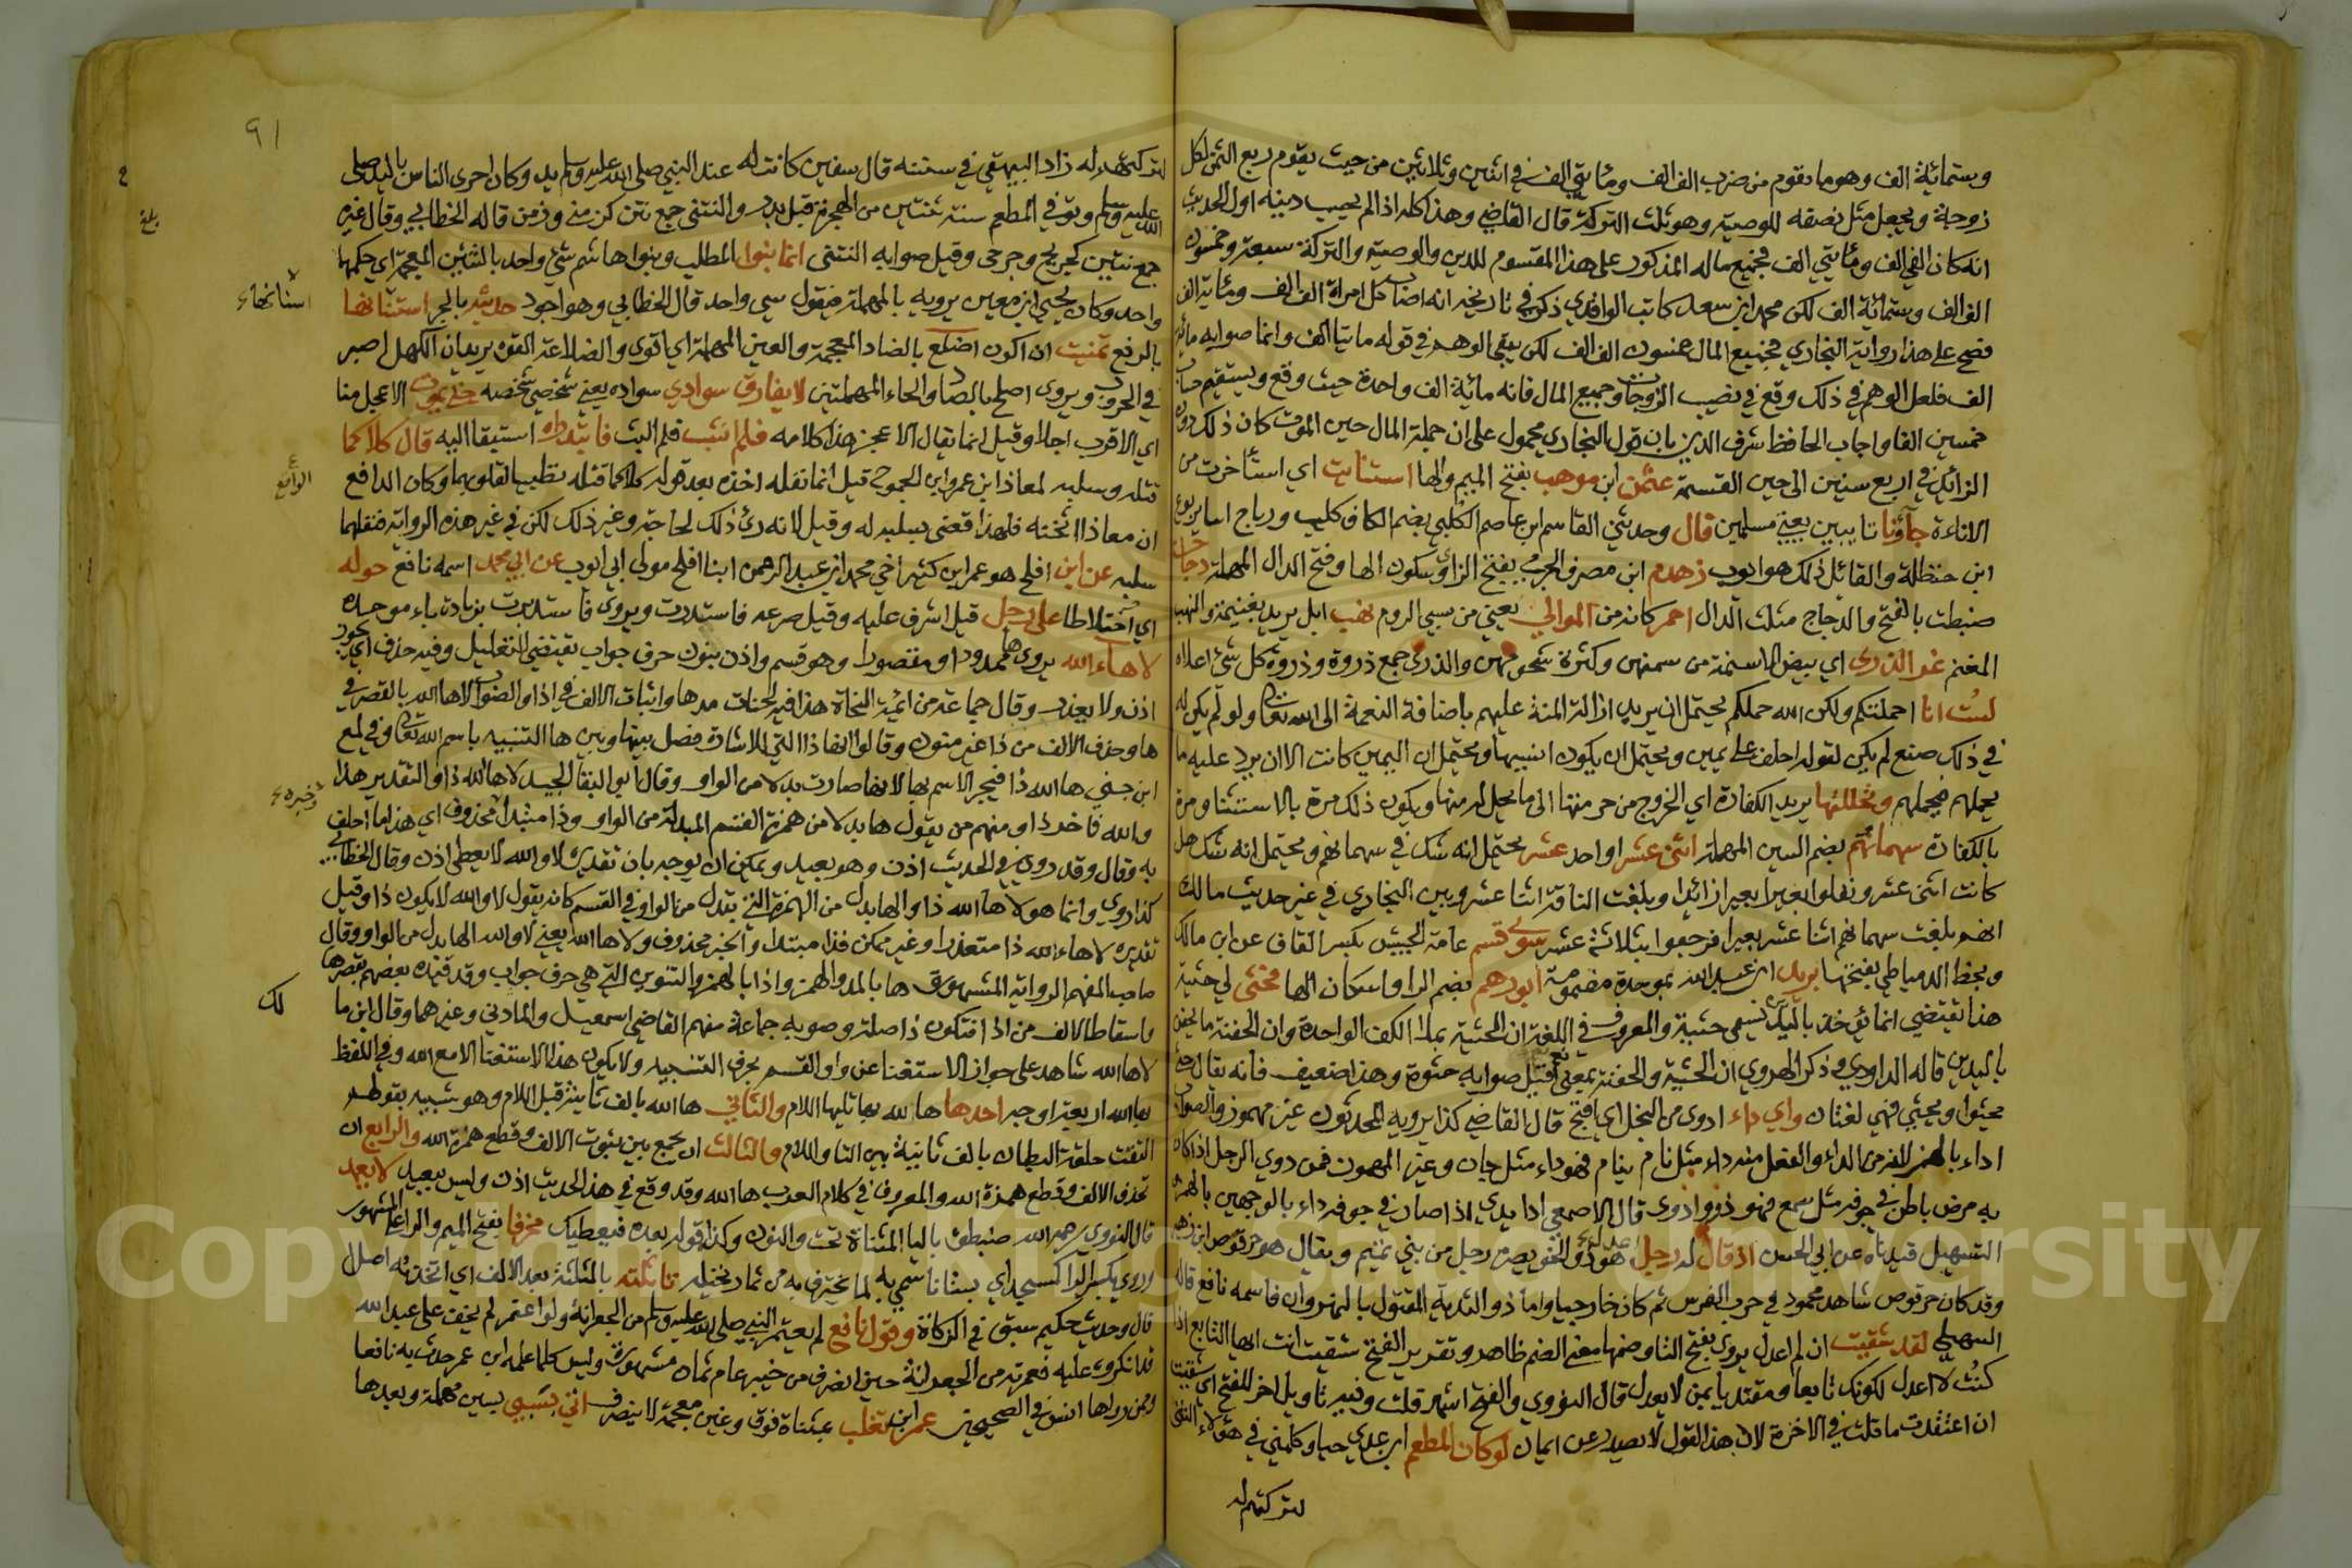 وستمائة الف وهو ما يقوم من ضرب الف الف ومائتي الف في اثنين وثلاثين من حيث يقوم ربع الثمن لكل
زوجة ويجعل مثل نصفه للوصية وهو ثلث التركة قال القاضي وهذا كله اذا لم يحسب دينه اول الحديث
انه كان الفي الف ومائتي الف فجميع ماله المذكور على هذا المقسوم للدين والوصية والتركة سبعة وخمسون
الف الف وستمائة الف لكن محمد ابن سعد كاتب الواقدي ذكر في تاريخه انه اصاب كل امراة الف الف ومائة الف
فصح على هذا رواية البخاري فجميع المال خمسون الف الف لكن يبقى الوهم في قوله مايتا الف وانما صوابه مائة
الف فلعل الوهم في ذلك وقع في نصيب الزوجات وجميع المال فانه مائة الف واحدة حيث وقع ويستقيم حساب
خمسين الفا واجاب الحافظ شرف الدين بان قول البخاري محمول على ان جملة المال حين الموت كان ذلك دون
الزائد في اربع سنين الى حين القسمة عثمن ابن موهب بفتح الميم والها استنانيت اي استأخرت من
الاناءة جآؤنا تايبين يعني مسلمين قال وحدثني القاسم ابن عاصم الكليبي بضم الكاف كليب ورياح ابنا يربوع
ابن حنظلة والقائل ذلك هو ايوب زهدم ابن مضرب الجرمي بفتح الزاي وسكون الها وفتح الدال المهملة دجاجة
ضبطت بالفتح والدجاج مثلث الدال احمر كانه من الموالي يعني من سبي الروم نهب ابل يريد بغنيمة والنهب
المغنم غر الذرى اي بيض الاسنمة من سمنهن وكثرة شحومهن والذرى جمع ذروة وذروة كل شئ اعلاه
لست انا احملتكم ولكن الله حملكم يحتمل ان يريد ازالة المنة عليهم باضافة النعمة الى الله تعالى ولو لم يكن له
في ذلك صنع لم يكن لقوله احلف على يمين ويحتمل ان يكون انسيها ويحتمل ان اليمين كانت الا ان يرد عليه ما
يحملهم فيحملهم وتحللتها يريد الكفارة اي الخروج من حرمتها الى ما يحل له منها ويكون ذلك مرة بالاستثنا ومرة
بالكفارة سهمانهم بضم السين المهملة اثنى عشر او احد عشر يحتمل انه شك في سهمانهم ويحتمل انه شك هل
كانت اثنى عشر ونفلوا بعيرا بعيرا زائدا وبلغت الناقة اثنا عشر وبين البخاري في غير حديث مالك
انهم بلغت سهمانهم اثنا عشر بعيرا فرجعوا بثلاثة عشر سوى قسم عامة الجيش بكسر القاف عن ابن مالك
وبخط الدمياطي بفتحها بريد ابن عبد الله بموحدة مضمومة ابو رهم بضم الرا واسكان الها فحثى لي حثية
هذا يقتضي انما يؤخذ باليدين تسمى حثية والمعروف في اللغة ان الحثية بملا الكف الواحدة وان الحفنة ما يحفن
باليدين قاله الداودي وذكر الهروي ان الحثية والحفنة بمعنى قيل صوابه حثوة وهذا ضعيف فانه يقال حثا
يحثوا ويحثي فهي لغتان واي داء ادوى من البخل اي اقبح قال القاضي كذا يرويه المحدثون غير مهموز والصواب
اداء بالهمز لانه من الداء والفعل منه داء مثل نام ينام فهو داء مثل جان وغير المهموز فمن دوي الرجل اذا كان
به مرض باطن في جوفه مثل سمع فهو دو ودوى قال الاصمعي اداء يدي اذا صار في جوفه داء بالوجهين بالهمز
التسهيل قيدناه عن ابي الحسن اذ قال له رجل اعدل هو ذو الخويصرة رجل من بني تميم ويقال هو حرقوص ابن زهير
وقد كان حرقوص شاهد محمود في حرب الفرس ثم كان خارجيا واما ذو الثدية المقتول بالنهروان فاسمه نافع قاله
السهيلي لقد شقيت ان لم اعدل يروى بفتح التا وضمها معنى الضم ظاهر وتقدير الفتح شقيت انت ايها التابع اذا
كنت لا اعدل لكونك تابعا ومقتديا بمن لا يعدل قال النووي والفتح اشهر قلت وفيه تاويل اخر للفتح اي شقيت
ان اعتقدت ما قلت في الاخرة لان هذا القول لا يصدر عن ايمان لو كان المطعم ابن عدي حيا وكلمني في هؤلاء النتنى
لتركتهم له
٩١
لتركتهم له زاد البيهقي في سننه قال سفين كانت له عند النبي صلى الله عليه وسلم يد وكان اجزى الناس باليد صلى
الله عليه وسلم وتوفي المطعم سنة ثنتين من الهجرة قبل بدر والنتنى جمع نتن كزمن وزمنى قاله الخطابي وقال غيره
جمع نتين كجريح وجرحى وقيل صوابه النتنى انما بنوا المطلب وبنوا هاشم شئ واحد بالشين المعجمة اي حكمهما
واحد وكان يحيى ابن معين يرويه بالمهملة فيقول سي واحد قال الخطابي وهو اجود حديثة بالجر استنانها
اسنانهما
بالرفع تمنيت ان اكون اضلع بالضاد المعجمة والعين المهملة اي اقوى والضلاعة القوة يريد ان الكهل اصبر
في الحروب ويروى اصلح بالصاد والحاء المهملتين لا يفارق سوادي سواده يعني شخصي شخصه حتى يموت الاعجل منا
اي الاقرب اجلا وقيل انما يقال الاعجز هذا كلامه فلم انشب فلم البث فابتدراه استبقا اليه قال كلاكما
قتله وسلبه لمعاذ ابن عمرو ابن الجموح قيل انما نفله اخذه بعد قوله كلاكما قتله تطييبا لقلوبهما وكان الدافع
الدافع
ان معاذا اثخنه فلهذا قضى بسلبه له وقيل لانه رئ ذلك لحاجة وغير ذلك لكن في غير هذه الرواية فنفلهما
سلبه عن ابن افلح هو عمر ابن كثير اخي محمد ابن عبد الرحمن ابنا افلح مولى ابي ايوب عن ابي محمد اسمه نافع جوله
اي اختلاطا على رجل قيل اشرف عليه وقيل صرعه فاستدرت ويروى فاستدبرت بزيادة باء موحدة
لا هاء الله يروى ها ممدودا ومقصورا وهو قسم واذن بنون حرف جواب يقتضي التعليل وفيه حذف اي يجوز
اذن ولا يعذر وقال جماعة من ائمة النحاة هذا فيه لحنات مدها واثبات الالف في اذا والصواب لاها الله بالقصر في
ها وحذف الالف من ذا غير منون وقالوا انها ذا التي للاشارة فصل بينها وبين ها التنبيه باسم الله تعالى وفي لمع
ابن جني ها الله ذا فيجر الاسم بها لانها صارت بدلا من الواو وقال ابو البقا الجيد لاها الله ذا والتقدير هذا
وخبره
والله فاخر ذا ومنهم من يقول ها بدلا من همزة القسم المبدلة من الواو وذا مبتدأ محذوف اي هذا ما احلف
به وقال وقد روي في الحديث اذن وهو بعيد ويمكن ان يوجه بان تقديره لا والله لا يعطي اذن وقال الخطابي
كذا روي وانما هو لاها الله ذا والها بدل من الهمزة التي تبدل من الواو في القسم كانه يقول لا والله لا يكون ذا وقيل
تقديره لاهاء الله ذا متعذرا وغير ممكن فذا مبتدا والخبر محذوف ولاها الله يعني لا والله الها بدل من الواو وقال
صاحب المفهم الرواية المشهورة ها بالمد والهمز واذا بالهمز والتنوين التي هي حرف جواب وقد قيده بعضهم بقصرها
واسقاط الالف من اذا فتكون ذا صلة وصوبه جماعة منهم القاضي اسمعيل والمازني وغيرهما وقال ابن ما
لك
لاها الله شاهد على جواز الاستغنا عن واو القسم بحرف التنبيه ولا يكون هذا الاستغنا الا مع الله وفي اللفظ
بها الله اربعة اوجه احدها ها لله بها تليها اللام والثاني ها الله بالف ثابتة قبل اللام وهو شبيه بقولهم
التقت حلقتا البطان بالف ثابتة بين التا واللام والثالث ان يجمع بين ثبوت الالف وقطع همزة الله والرابع ان
تحذف الالف وقطع همزة الله والمعروف في كلام العرب ها الله وقد وقع في هذا الحديث اذن وليس ببعيد لا يعمد
قال النووي رحمه الله ضبطوه باليا المثناة تحت والنون وكذا قوله بعده فيعطيك مخرفا بفتح الميم والراء على المشهور
وروي بكسر الراء كمسجد اي بستانا سمي به لما يخترف به من ثمار نخيله تاثلته بالمثلثة بعد الالف اي اتخذته اصل
قال وحديث حكيم سبق في الزكاة وقول نافع لم يعتمر النبي صلى الله عليه وسلم من الجعرانة ولو اعتمر لم يخف على عبد الله
قد انكروه عليه فعمرته من الجعرانة حين انصرف من خيبر عام ثمان مشهورة وليس كلما علمه ابن عمر حدث به نافعا
وممن رواها انس في الصحيحين عمرو ابن تغلب بمثناة فوق وغين معجمة لا ينصرف اني بسبي بسين مهملة وبعدها
Copyright © King Saud University